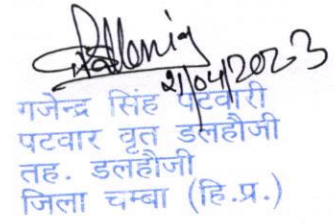 21/04/2023
गजेन्द्र सिंह पटवारी
पटवार वृत डलहौजी
तह. डलहौजी
जिला चम्बा (हि.प्र.)